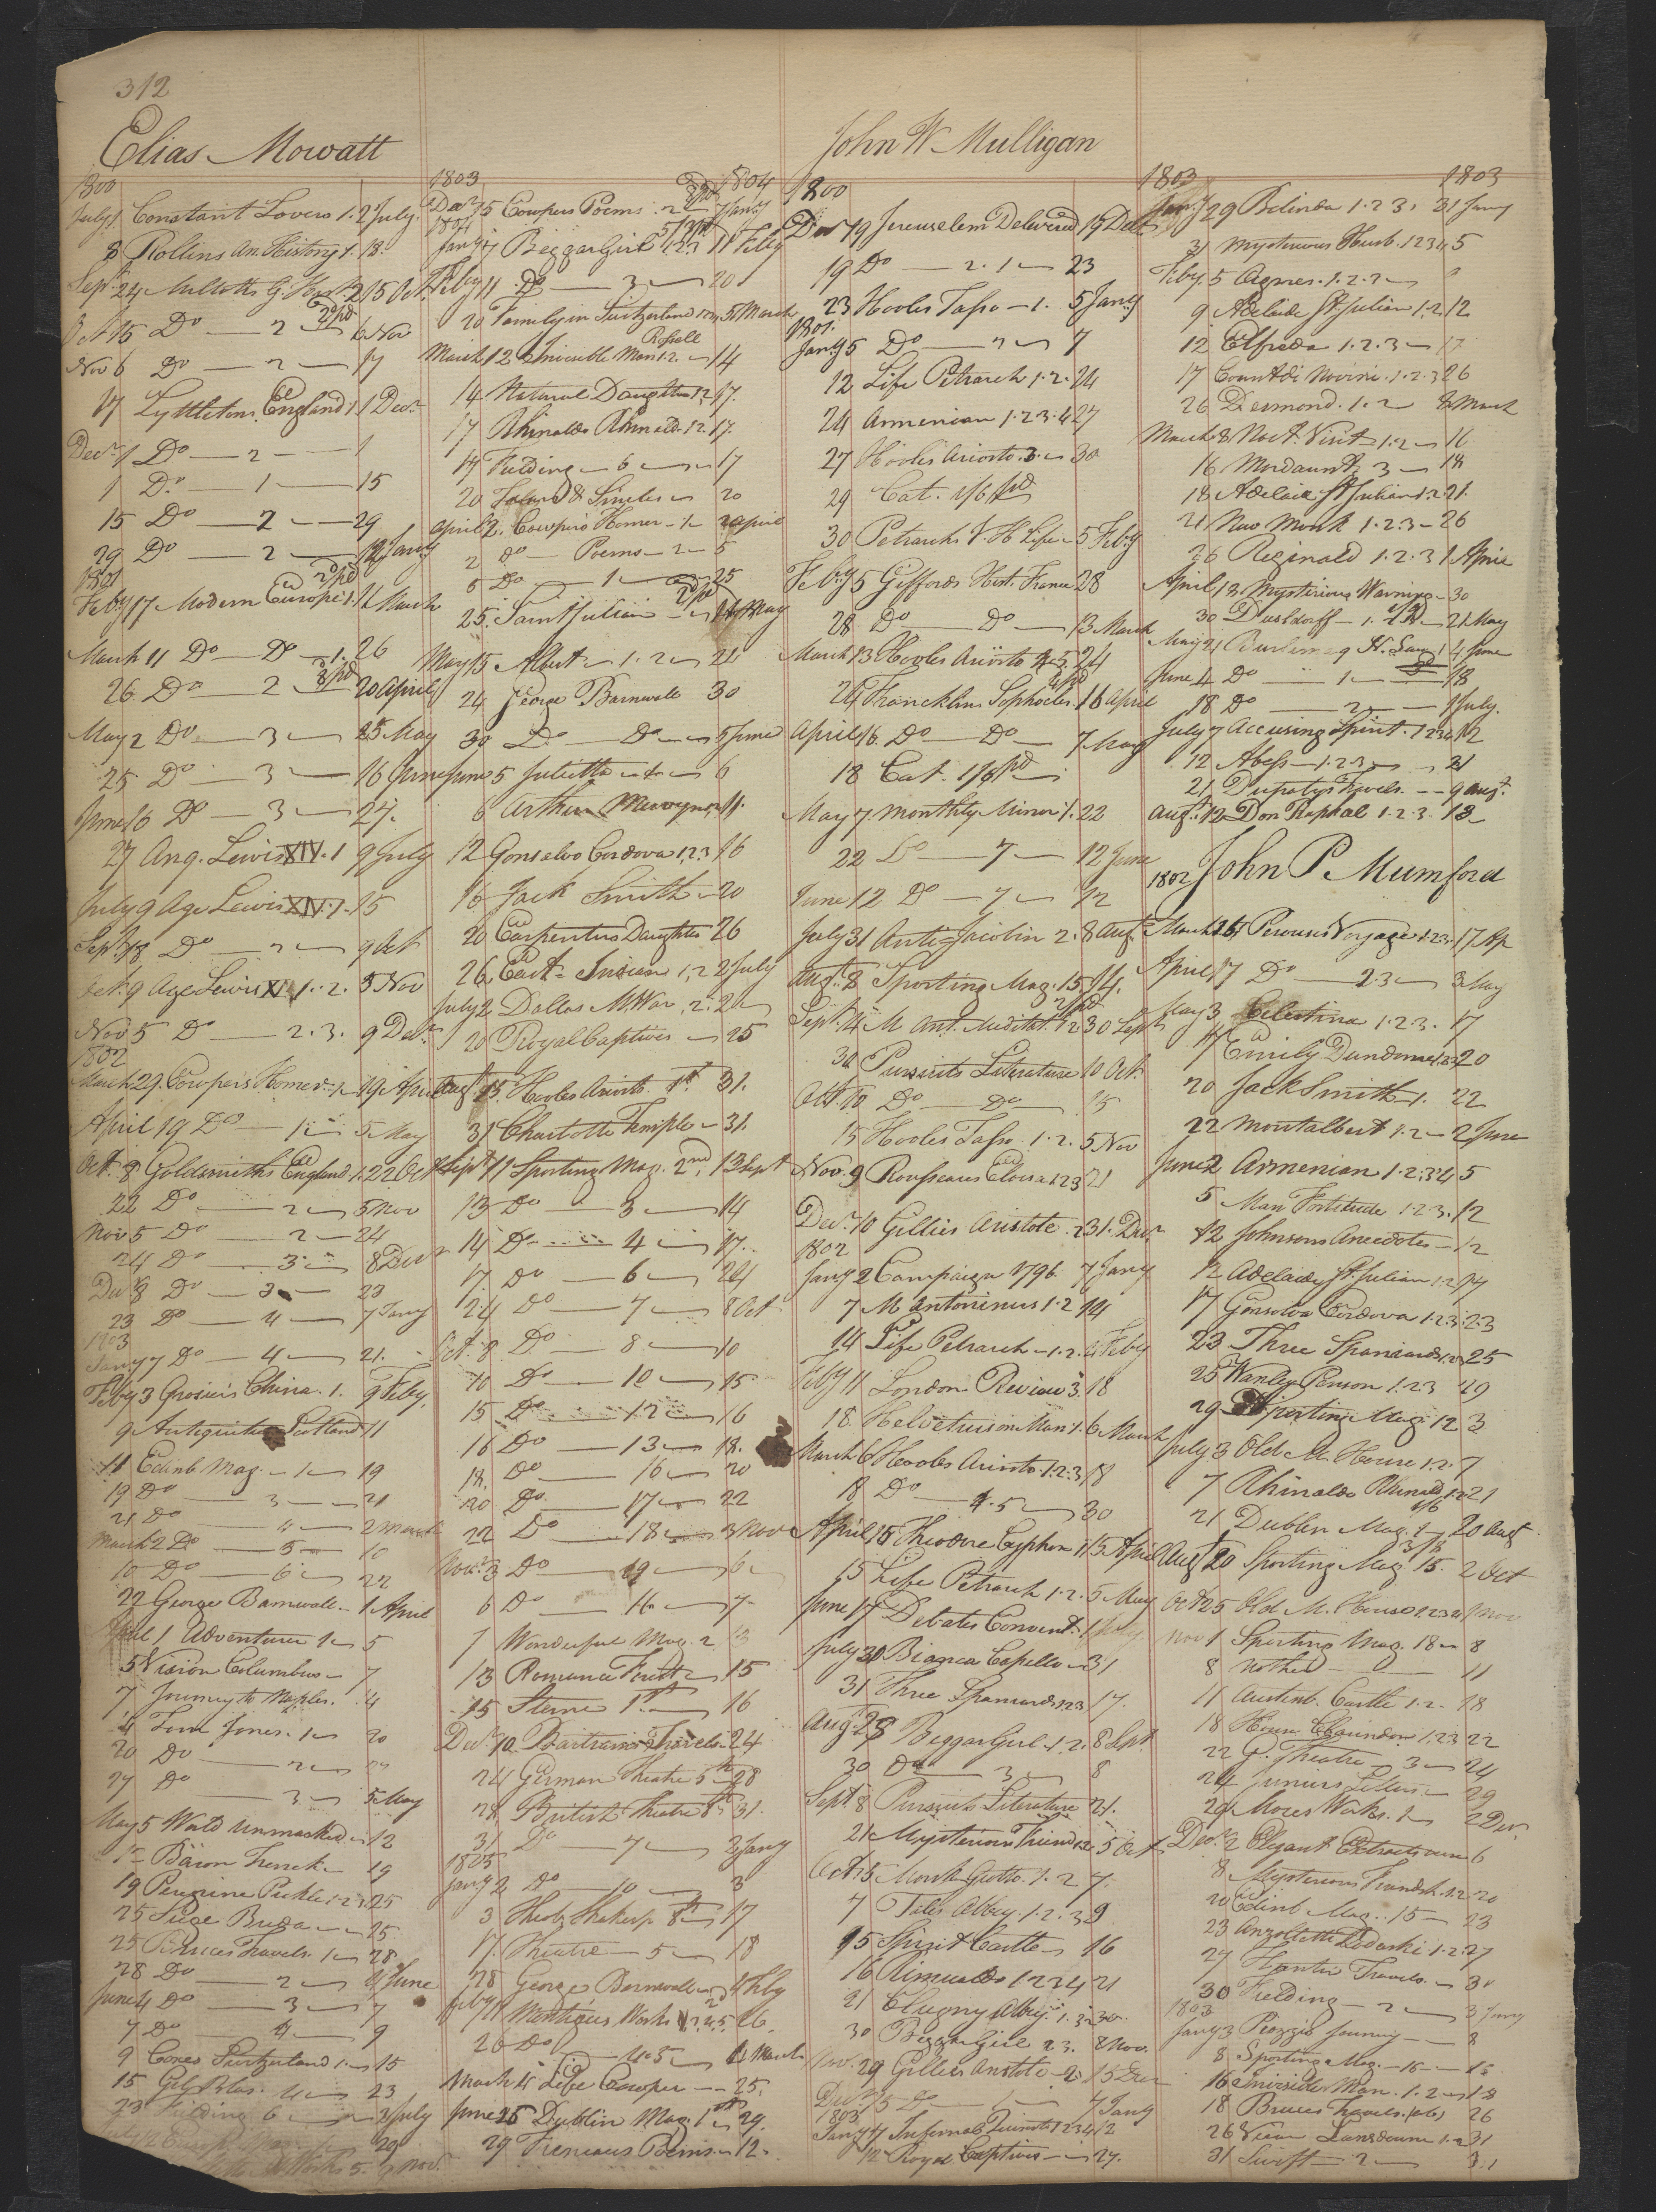 312
Elias Mowatt
1800
July 1 Constant Lovers 1. 2 July
8 Rollins An. History 1. 18.
Sept. 24 G. Hist. 2 15 Oct.
Oct 15 Do — 2 — 6 Nov
Nov 6 Do — 2 — 17
17 Lyttletons England 1 1 Decr
Decr 1 Do — 2 — 1
1 Do — 1 — 15
15 Do — 2 — 29
29 Do — 2 — Jany
1801
Feby 17 Modern Europe 1. 11 March
March 11 Do — Do — 1. 26
26 Do — 2 — 20 April
May 2 Do — 3 — 25 May
25 Do — 3 — 16 June
June 16 Do — 3 — 27.
27 Ang. Lewis XIV. 1 9 July
July 9 Age Lewis XIV. 1. 15
Sept 18 Do — 2 — 9 Oct
Oct. 9 Age Lewis XIV 1. 2. 5 Nov
Nov 5 Do — 2. 3. 9 Decr
1802
March 29. Cowpers Homer. 1 19 April
April 19 Do — 1 — 5 May
Oct. 8 Goldsmiths England 1. 22 Oct
22 Do — 2 — 5 Nov
Nov 5 Do — 2 — 24
24 Do — 3 — 8 Decr
Der 8 Do — 3 — 23
23 Do — 4 — 7 Jany
1803
Jany 7 Do — 4 — 21.
Feby 3 Grosiers China. 1. 9 Feby.
9 Antiquities Scotland 11
11 Edinb Mag. — 1 — 19
19 Do — 3 — 21
21 Do — 4 — 2 March
March 2 Do — 5 — 10
10 Do — 6 — 22
22 George Barnwell — 1 April
April 1 Adventurer 1 — 5
5 Vision Columbus — 7
7 Journey to Naples. 4
4 Tom Jones. 1 — 20
20 Do — 2 — 27
27 Do — 3 — 5 May
May 5 World Unmasked — 12
12 Baron Trenck — 19
19 Peregrine Pickle 1. 2. 3 25
25 Siege Breda — 25
25 Bruces Travels. 1 — 28
28 Do — 2 — 4 June
June 4 Do — 3 — 7
7 Do — 4 — 9
9 Coxes Switzerland 1 — 15
15 Gil Blas. 4 — 23
23 Fielding 6 — 3 July
Works 5. Nov.
1803 1804
Decr 15 Cowpers Poems 2 7 Jany
1804
Jany 7 Beggar Girl 1. 2. 11 Feby
Feby 11 Do — 3 — 20
20 Family in Switzerland 5 March
Rosalle
March 12 Invisible Man 1. 2. — 14
14 Natural Daughter 1. 2. 17.
17 Rhinaldo Rhinald. 1. 2. 17.
17 Fielding — 6 — 17
20 — 20
April 2. Cowpers Homer — 1 — 2 April
2 Do — Poems — 2 — 5
5 Do — 1 — 25
25. Saint Julian — May
May 15 Albert — 1. 2 — 24
24 George Barnwell 30
30 Do — Do — 5 June
June 5 Juliette — 6
6 Arthur Mervyn — 11.
12 Gonsalvo Cordova 1. 2. 3 16
16 Jack Smith — 20
20 Carpenters Daughter 26
26 East Indian 1. 2 2 July
July 2 Dallas M. War. 2.
20 Royal Captives — 25
Augt 15. Hooles Ariosto. 1st 31.
31 Charlotte Temple — 31.
Sept 11 Sporting Mag. 2nd, 13 Sept
13 Do — 3 — 14
14 Do — 4 — 17.
17. Do — 6 — 24
24 Do — 7 — 8 Oct
Oct. 8 Do — 8 — 10
10 Do — 10 — 15
15 Do — 12 — 16
16 Do — 13 — 18.
18. Do — 16 — 20
20 Do — 17 — 22
22 Do — 18 — 3 Nov
Novr 3 Do — 19 — 6
6 Do — 16 — 7
7 Wonderful Mag. 2 13
13 Romance Forest — 15
15 Sterne 1st — 16
Decr 10 Bartrams Travels — 24
24 German Theatre 5th 28
28 British Theatre 8th 31.
31 Do — 7 — 2 Jany
1805
Jany 2 Do — 10 — 3
3 Theob. Shakesp. 8th 17
17. Theatre — 5 — 18
28 George Barnwell 4 Feby
Feby 11 Montagues Works 1. 2. 3. 26.
26 Do — 4. 5 — 4 March
March 4 Life Cowper — 25.
June 25 Dublin Mag. 1st 29.
29 Freneaus Poems — 12.
John W Mulligan
1800
Decr 19 Jerusalem Delivered 19 Decr
19 Do — 2. 1 — 23
23 Hooles Tasso — 1. 5 Jany
1801.
Jany 5 Do — 2 — 7
12 Life Petrarch 1. 2. 24
24 Armenian 1. 2. 3. 4 27
27 Hooles Ariosto 3. — 30
29 Cat. 1/6 pd
30 Petrarchs Life — 5 Feby
Feby 5 Giffords Hist. France 28
28 Do — Do — 13 March
March 13 Hooles Ariosto 4. 5. 24
24 Francklins Sophocles. 16 April
April 16. Do — Do — 7 May
18 Cat. 1/6 pd
May 7 Monthly Mirror 1. 22
22 Do — 7 — 12 June
June 12 Do — 7 — 12
July 31 Anti-Jacobin 2. 8 Augt
Augt 8 Sporting Mag. 15. 14.
Sept. 4 M. Ant. Meditat. 1. 2 30 Sept
30 Pursuits Literature 10 Oct.
Oct. 10 Do — Do — 15
15 Hooles Tasso. 1. 2. 5 Nov
Nov. 9 Rousseaus Eloisa 1. 2. 3 21
Decr 10 Gillies Aristotle 2 31. Decr
1802
Jany 2 Campaign 1796. 7 Jany
7 M Antoninus 1. 2 14
14 Life Petrarch — 1. 2. 4 Feby
Feby 11 London Review 3. 18
18 Helvetius on Man 1. 6 March
March 6 Hooles Ariosto. 1. 2. 3 18
18 Do — 4. 5 — 30
April 15 Theodore Cyphon 1 15 April
15 Life Petrarch 1. 2. 5 May
June 17 Debates Convent. 1 July
July 30 Bianca Capello — 31
31 Three Spaniards 1. 2. 3 17.
Augt 28 Beggar Girl. 1. 2. 8 Sept.
30 Do — 3 — 8
Sept. 8 Pursuits Literature 21.
21 Mysterious Friend 1. 2. 5 Oct
Oct 5 Monk Grotto. 1. 2 7.
7 Tales Abbey. 1. 2. 3 9
15 Spirit Castle — 16
16 Rimualdo 1. 2. 3. 4 21
21 Clugny Abbey 1. 3. 30.
30 Beggar Girl 2. 3. 8 Nov.
Nov. 29 Gillies Aristotle — 2 15 Decr
Decr 15 Do — 7 Jany
1803
Jany 7 Infernal Quixote 1. 2. 3. 4 12
12 Royal Captives — 27.
1803 1803
Jany 29 Belinda 1. 2. 3. 31 Jany
31 Mysterious Husb. 1. 2. 3. 4 5
Feby. 5 Agnes. 1. 2. 3 —
9 Adelaide St. Julian 1. 2 12
12 Elfreda 1. 2. 3 — 17
17 Count di Novini. 1. 2. 3 26
26 Desmond. 1. 2 8 March
March 8 Noct. Visit 1. 2 — 16
16 Mordaunt 3 — 18
18 Adelaide St Julian 1. 2. 21.
21 New Monk 1. 2. 3 — 26
26 Reginald 1. 2. 3 1 April
April 18 Mysterious Warning — 30
30 Dusseldorff — 1. 2 — 21 May
May 21 4 June
June 4 Do — 1 — 18
18 Do — 2 — 1 July.
July 7 Accusing Spirit. 1. 2. 3. 4 12
12 Abess — 1. 2. 3 — 21
21 Dupatys Travels. — 9 Augt
Augt 12 Don Raphael 1. 2. 3. 13
1802 John P. Mumford
March 26 Perouses Voyage 1. 2. 3. 17 Ap
April 17 Do — 2. 3 — 3 May
May 3 Celestina 1. 2. 3. 17
17 Emily Dundorne 1. 2. 3 20
20 Jack Smith — 1. 22
22 Montalbert 1. 2 — 2 June
June 2 Armenian 1. 2. 3. 4 5
5 Man Fortitude 1. 2. 3. 12
12 Johnsons Anecdotes — 12
12 Adelaide St. Julian 1. 2. 17
17 Gonsalvo Cordova 1. 2. 3. 23
23 Three Spaniards 1. 2. 3 25
25 Wanley Penson 1. 2. 3 29
29 Sporting Mag. 12 3
July 3 Old M. House 1. 2. 7
7 Rhinaldo Rhinald. 1. 2. 21
21 Dublin Mag. 1 — 20 Augt
Augt 20 Sporting Mag 15. 2 Oct
Oct 25 Old M. House 1. 2. 3. 4 1 Nov
Nov 1 Sporting Mag. 18 — 8
8 — 11
11 Austenb. Castle 1. 2 — 18
18 1. 2. 3 22
22 G. Theatre — 3 — 24
24 Junius Letters — 29
29 Mores Works. 1 — 2 Decr
Decr 2 Elegant Extracts 6
8 Mysterious Friendsh. 1. 2 20
20 Edinb Mag. 15 — 23
23 Anzoletta Zadoski 1. 2. 27
27 Travels. — 30
30 Fielding — 2 — 3 Jany
1803
Jany 3 Piozzis Journey — 8
8 Sporting Mag. — 15 — 16
16 Invisible Man. 1. 2 — 18
18 Bruces Travels. 26
26 Lansdowne 1. 2 31
31 Swift — 2 — 31